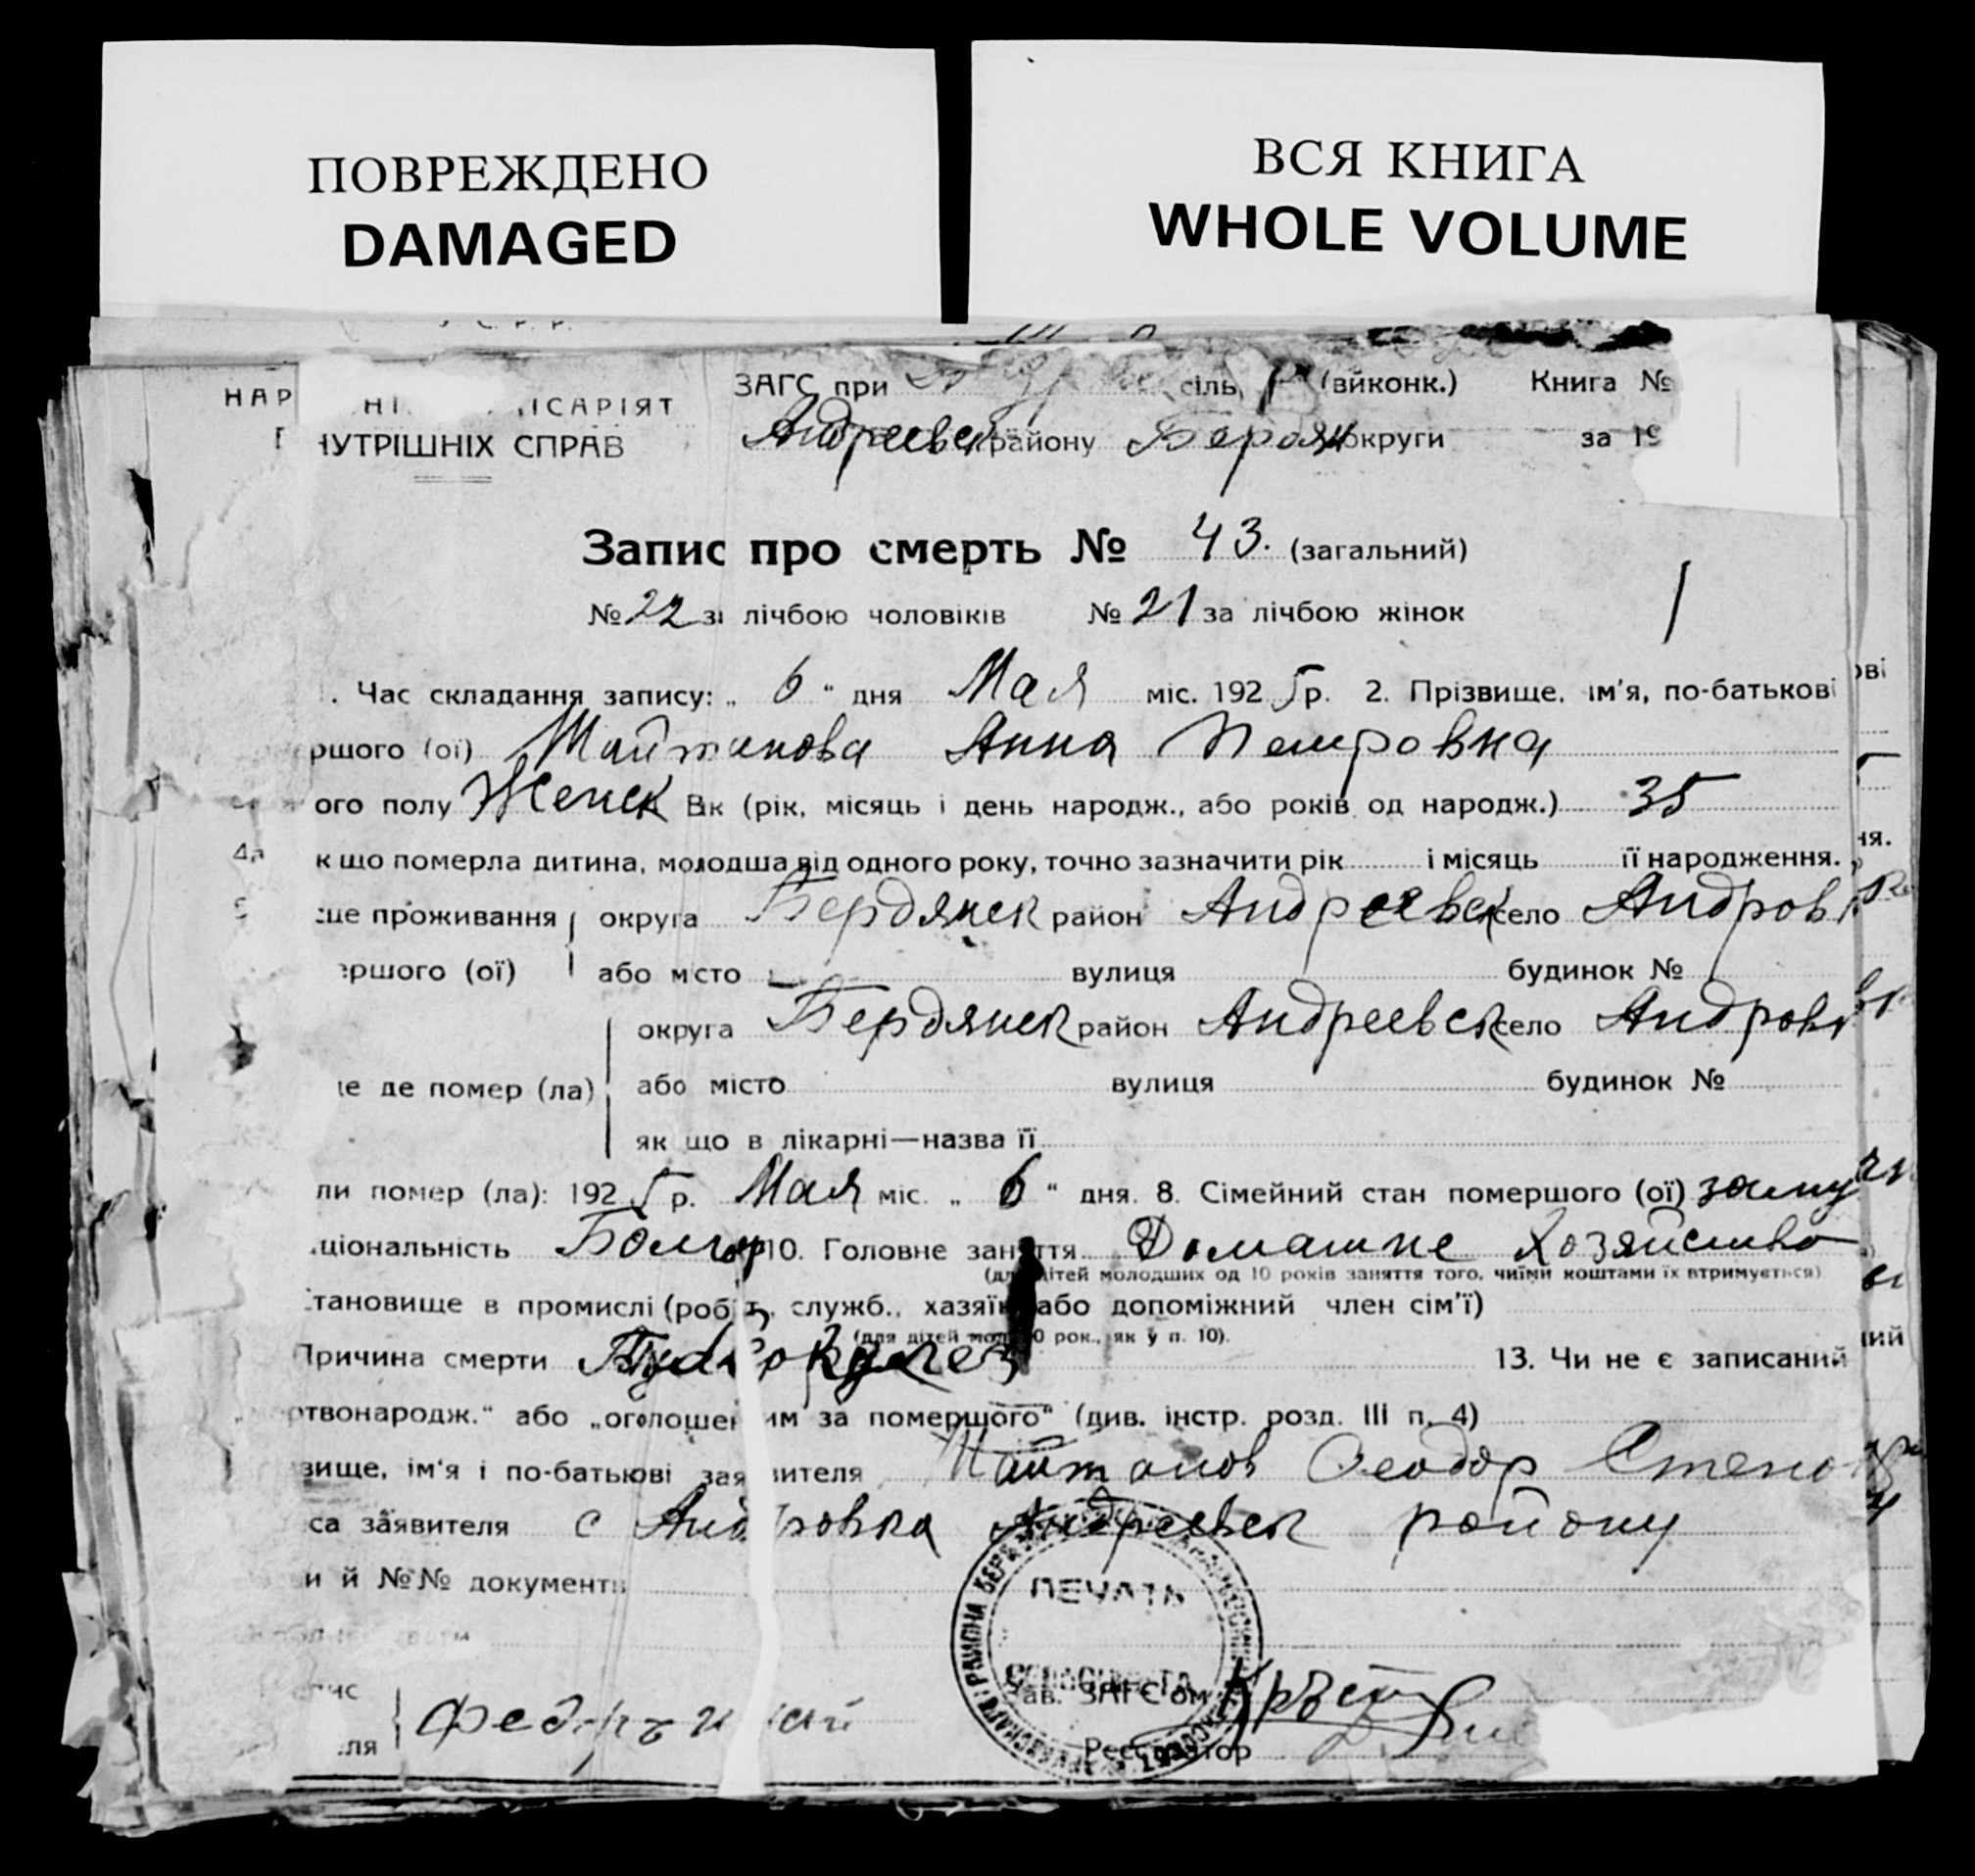 ПОВРЕЖДЕНО
DAMAGED
ВСЯ КНИГА
WHOLE VOLUME
ЗАГС при сіль (вйконк.) Книга №
НАР НІ ІСАРІЯТ
НУТРІШНІХ СПРАВ Андреевск району Бердян округи за 19
Запис про смерть № 43. (загальний)
№ 22 за лічбою чоловіків № 21 за лічбою жінок
. Час складання запису: „ 6 " дня Мая міс. 1925 р. 2. Прізвище, ім'я, по-батькові
ршого (ої) Майтанова Анна Петровна
ого полу Женск Вік (рік, місяць і день народж., або років од народж.) 35
4. к що померла дитина, молодша від одного року, точно зазначити рік і місяць її народження.
ще проживання округа Бердянск район Андреевск село Андровк
ершого (ої) або місто вулиця будинок №
округа Бердянск район Андреевск село Андровк
це де помер (ла) або місто вулиця будинок №
як що в лікарні—назва її
ли помер (ла): 1925 р. Мая міс. „ 6 " дня. 8. Сімейний стан помершого (ої) заму
ціональність Болгар 10. Головне заняття Домашне Хозяйство
(для дітей молодших од 10 років заняття того, чиїми коштами їх втримується)
становище в промислі (роб служб., хазяїн або допоміжний член сім'ї)
(для дітей мол 10 рок., як у п. 10).
Причина смерти Туберкулез 13. Чи не є записаний
ртвонародж." або „оголошеним за помершого" (див. інстр. розд. III п. 4)
звище, ім'я і по-батькові заявителя Майтанов Феодор Степано
са заявителя с Андровка Андреевск району
и й №№ документі
ПЕЧАТЬ
пис
ля Зав. ЗАГС'ом
Реєстратор